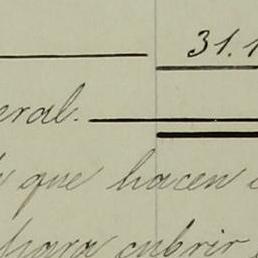 31.1
eral.
que hacen
para cubrir